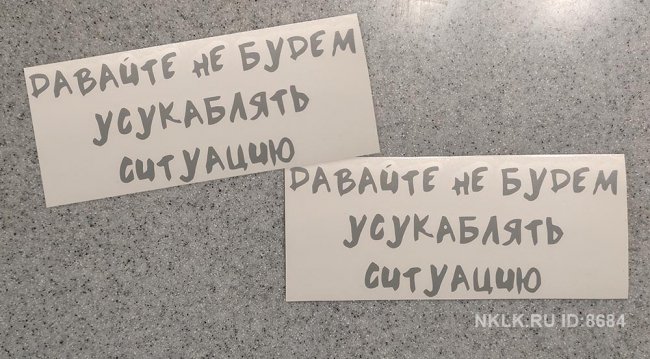 ДАВАЙТЕ НЕ БУДЕМ
УСУКАБЛЯТЬ
СИТУАЦИЮ
ДАВАЙТЕ НЕ БУДЕМ
УСУКАБЛЯТЬ
СИТУАЦИЮ
NKLK.RU ID:8684